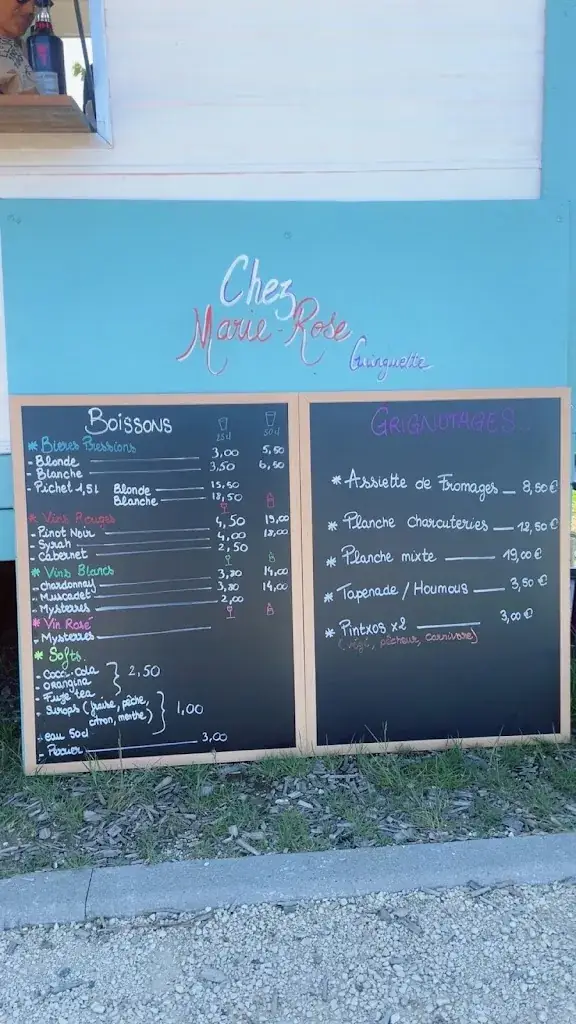 Chez
Marie-Rose
Guinguette
BOISSONS
* Bieres Pressions 25cl 50cl
- Blonde 3,00 5,50
- Blanche 3,50 6,50
- Pichel 1,5L Blonde 15,50
Blanche 18,50
* Vins Rouges
- Pinot Noir 4,50 19,00
- Syrah 4,00 18,00
- Cabernet 2,50
* Vins Blancs
- chardonnay 3,80 14,00
- Muscadet 3,80 14,00
- Mysterres 2,00
* Vin Rosé
- Mysterres
* Softs
- Coca-Cola
- orangina
- Fuze tea
2,50
- Sirops (fraise, pêche,
citron, menthe)
1,00
- eau 50cl
- Perrier 3,00
GRIGNOTAGES...
* Assiette de Fromages 8,50€
* Planche charcuteries 12,50€
* Planche mixte 19,00€
* Tapenade / Houmous 3,50€
* Pintxos x2 3,00€
(végé, pêcheur, carnivore)